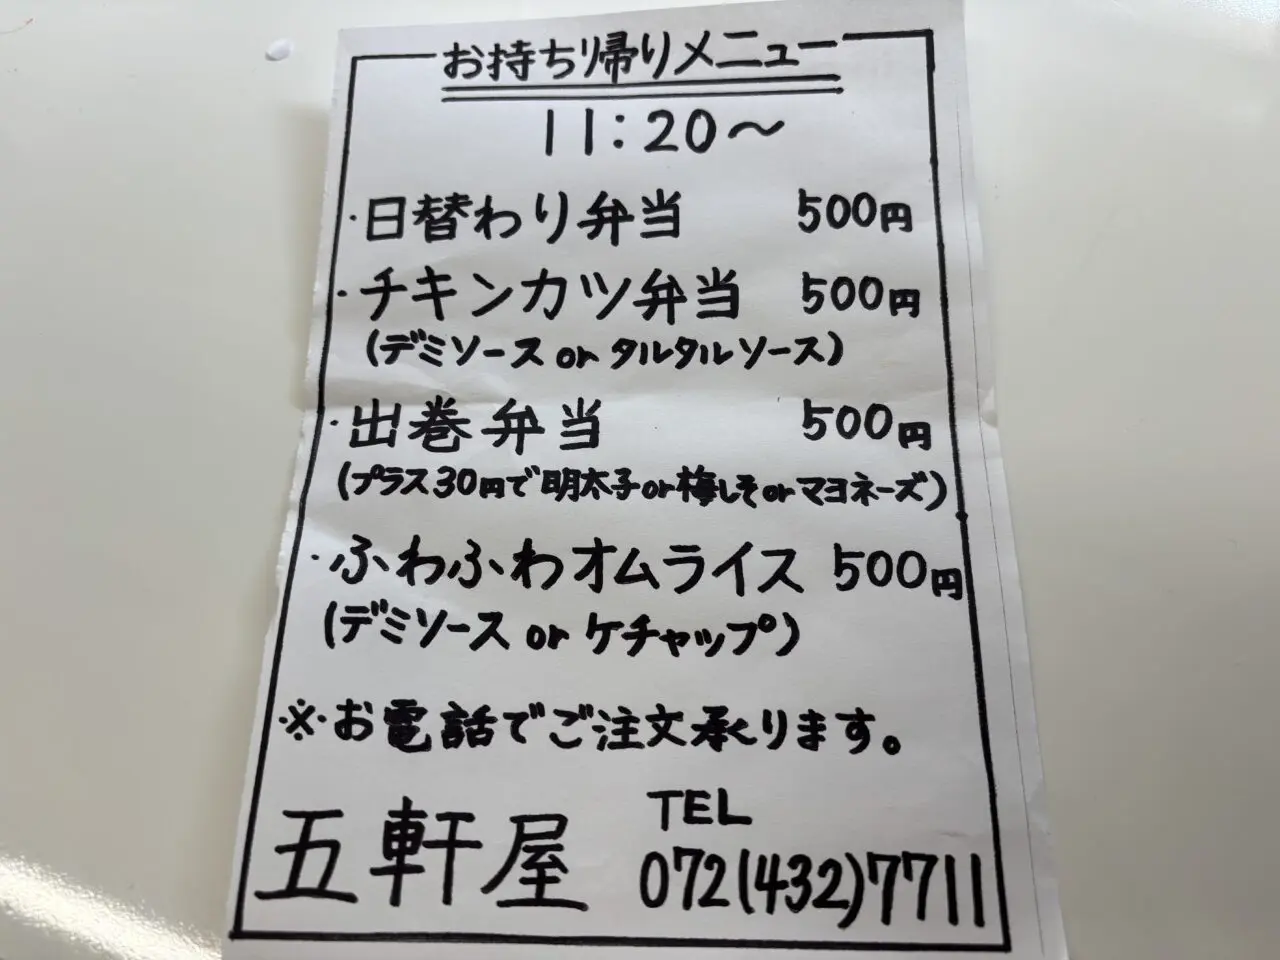 お持ち帰りメニュー
11:20〜
・日替わり弁当 500円
・チキンカツ弁当 500円
(デミソース or タルタルソース)
・出巻弁当 500円
(プラス30円で明太子or梅しそorマヨネーズ)
・ふわふわオムライス 500円
(デミソース or ケチャップ)
※お電話でご注文承ります。
五軒屋 TEL
072(432)7711